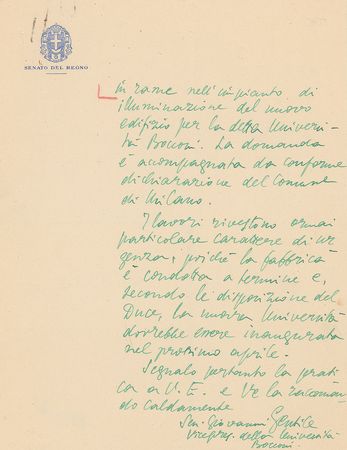 SENATO DEL REGNO
in rame nell'impianto di
illuminazione del nuovo
edifizio per la detta Universi-
tà Bocconi. La domanda
è accompagnata da conforme
dichiarazione del Comune
di Milano.
I lavori rivestono ormai
particolare carattere di ur
genza, poiché la fabbrica
è condotta a termine e,
secondo le disposizioni del
Duce, la nuova Università
dovrebbe essere inaugurata
nel prossimo aprile.
Segnalo pertanto la prati
ca a V. E. e Ve la raccoman
do caldamente
Sen. Giovanni Gentile
Vicepres. della Università
Bocconi.